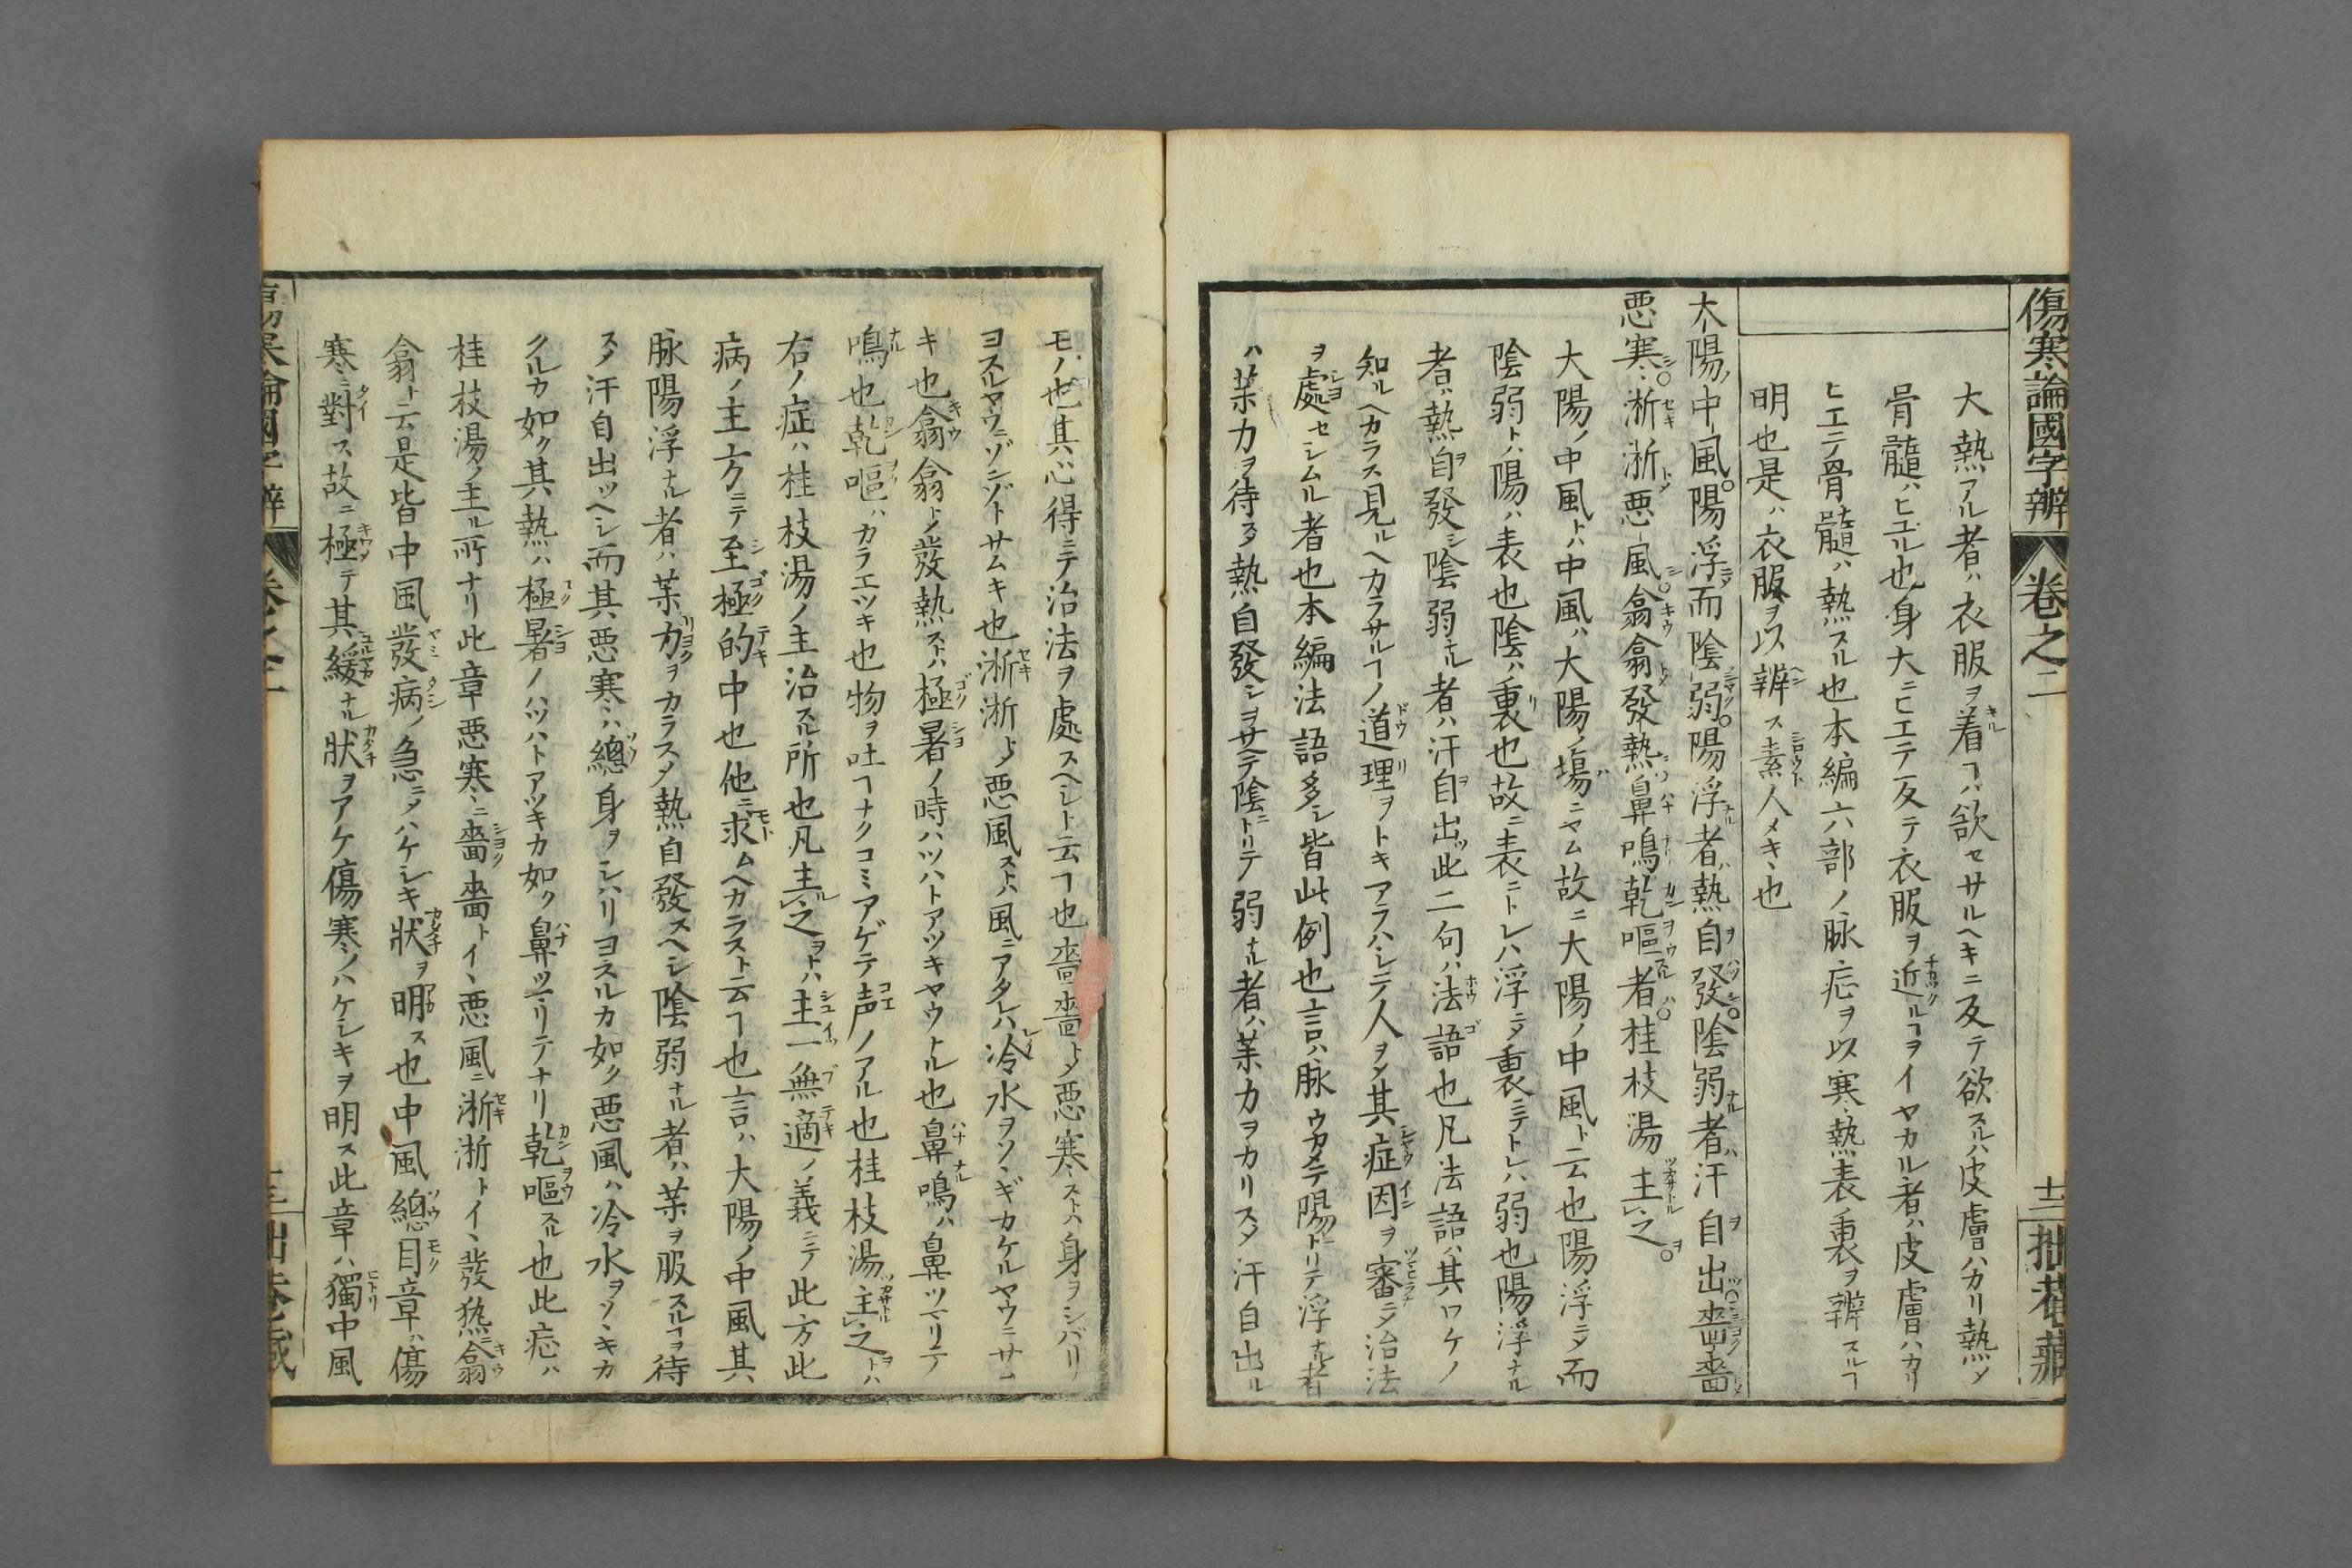 傷寒論國字辨 卷之二 十二 拙菴藏
大熱アル者ハ衣服ヲ着ヿハ欲セサルヘキニ反テ欲スルハ皮膚ハカリ熱メ
骨髓ハヒユル也身大ニヒエテ反テ衣服ヲ近ルヿヲイヤカル者ハ皮膚ハカリ
ヒエニテ骨髓ハ熱スル也本編六部ノ脉症ヲ以寒熱表裏ヲ辨スルヿ
明也是ハ衣服ヲ以辨ス素人メキヽ也
太陽ノ中風陽浮而陰弱陽浮者ハ熱自發陰弱者ハ汗自出嗇嗇
悪寒淅淅悪風翕翕發熱鼻鳴乾嘔者桂枝湯主之
大陽ノ中風トハ中風ハ大陽ノ塲ニヤム故ニ大陽ノ中風ト云也陽浮ニメ而
陰弱トハ陽ハ表也陰ハ裏也故ニ表ニトレハ浮ニメ裏ニテトレハ弱也陽浮ナル
者ハ熱自發シ陰弱ナル者ハ汗自出ツ此二句ハ法語也凡法語ハ其ワケノ
知ルヘカラス見ルヘカラサルヿノ道理ヲトキアラハシテ人ヲメ其症因ヲ審ニメ治法
ヲ處セシムル者也本編法語多シ皆此例也言ハ脉ウカヽメテ陽ニトリテ浮ナル者
ハ藥力ヲ待スメ熱自發シヲサヘテ陰ニトリテ弱ナル者ハ藥力ヲカリスメ汗自出ル
モノ也其心得ニテ治法ヲ處スヘシト云ヿ也嗇嗇トメ悪寒ストハ身ヲシバリ
ヨスルヤウニゾンゾトサムキ也淅淅トメ悪風ストハ風ニアタレハ冷水ヲソヽギカケルヤウニサム
キ也翕翕トメ發熱ストハ極暑ノ時ハツハトアツキヤウトル也鼻鳴ハ鼻ツマリテ
鳴也乾嘔ハカラエツキ也物ヲ吐ヿナクコミアゲテ声ノアル也桂枝湯主之トハ
右ノ症ハ桂枝湯ノ主治スル所也凡主之トハ主一無適ノ義ニテ此方此
病ノ主方ニテ至極的中也他ニ求ムヘカラスト云ヿ也言ハ大陽ノ中風其
脉陽浮ナル者ハ藥力ヲカラスメ熱自發スヘシ陰弱ナル者ハ藥ヲ服スルヿヲ待
スメ汗自出ツヘシ而其悪寒ハ總身ヲシハリヨスルカ如ク悪風ハ冷水ヲソヽキカ
クルカ如ク其熱ハ極暑ノハツハトアツキカ如ク鼻ツマリテナリ乾嘔スル也此症ハ
桂枝湯ノ主ル所ナリ此章悪寒ニ嗇嗇トイヽ悪風ニ淅淅トイヽ發熱ニ翕
翕ト云是皆中風發病ノ急ニメハケシキ狀ヲ明ス也中風總目章ハ傷
寒ニ對ス故ニ極テ其緩ナル狀ヲアケ傷寒ノハケシキヲ明ス此章ハ獨中風
傷寒論國字辨 卷之二